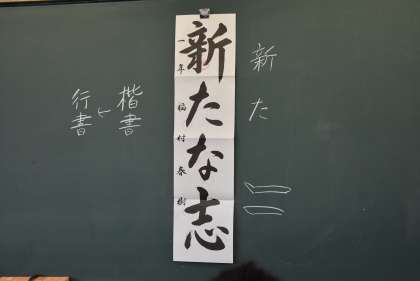 新た
新たな志
一年 福村春樹
楷書
行書